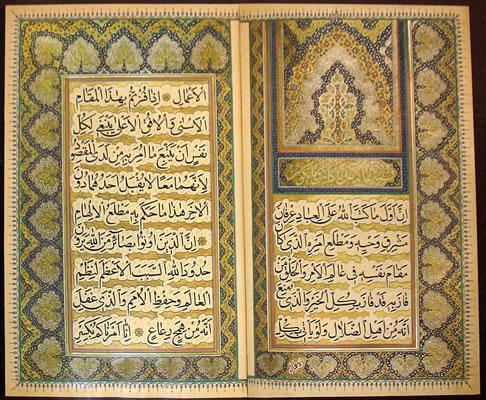 ان اول ما كتب الله على العباد عرفان
مشرق وحيه ومطلع امره الذي كان
مقام نفسه في عالم الامر والخلق من
فاز به قد فاز بكل الخير والذي منع
انه من اهل الضلال ولو يأتي بكل
الاعمال ۞ اذا فزتم بهذا المقام
الاسنى والافق الاعلى ينبغي لكل
نفس ان يتبع ما امر به من لدى المقصود
لانهما معا لا يقبل احدهما دون
الآخر هذا ما حكم به مطلع الالهام
۞ ان الذين اوتوا بصائر من الله يرون
حدود الله السبب الاعظم لنظم
العالم وحفظ الامم والذي غفل
انه من همج رعاع ۞ انا امرناكم بكسر